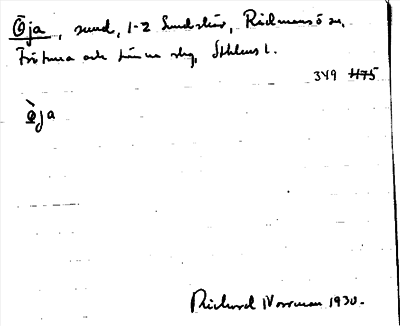 Öja, sund, 1-2 Sundskär, Rådmansö sn,
Frötuna och Länna skg, Sthlms l.
349 475
Öja
Richard Norrman 1930.